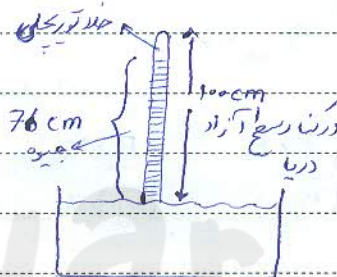 خلا توریچلی
100 cm
76 cm
جیوه
در کنار سطح آزاد
دریا